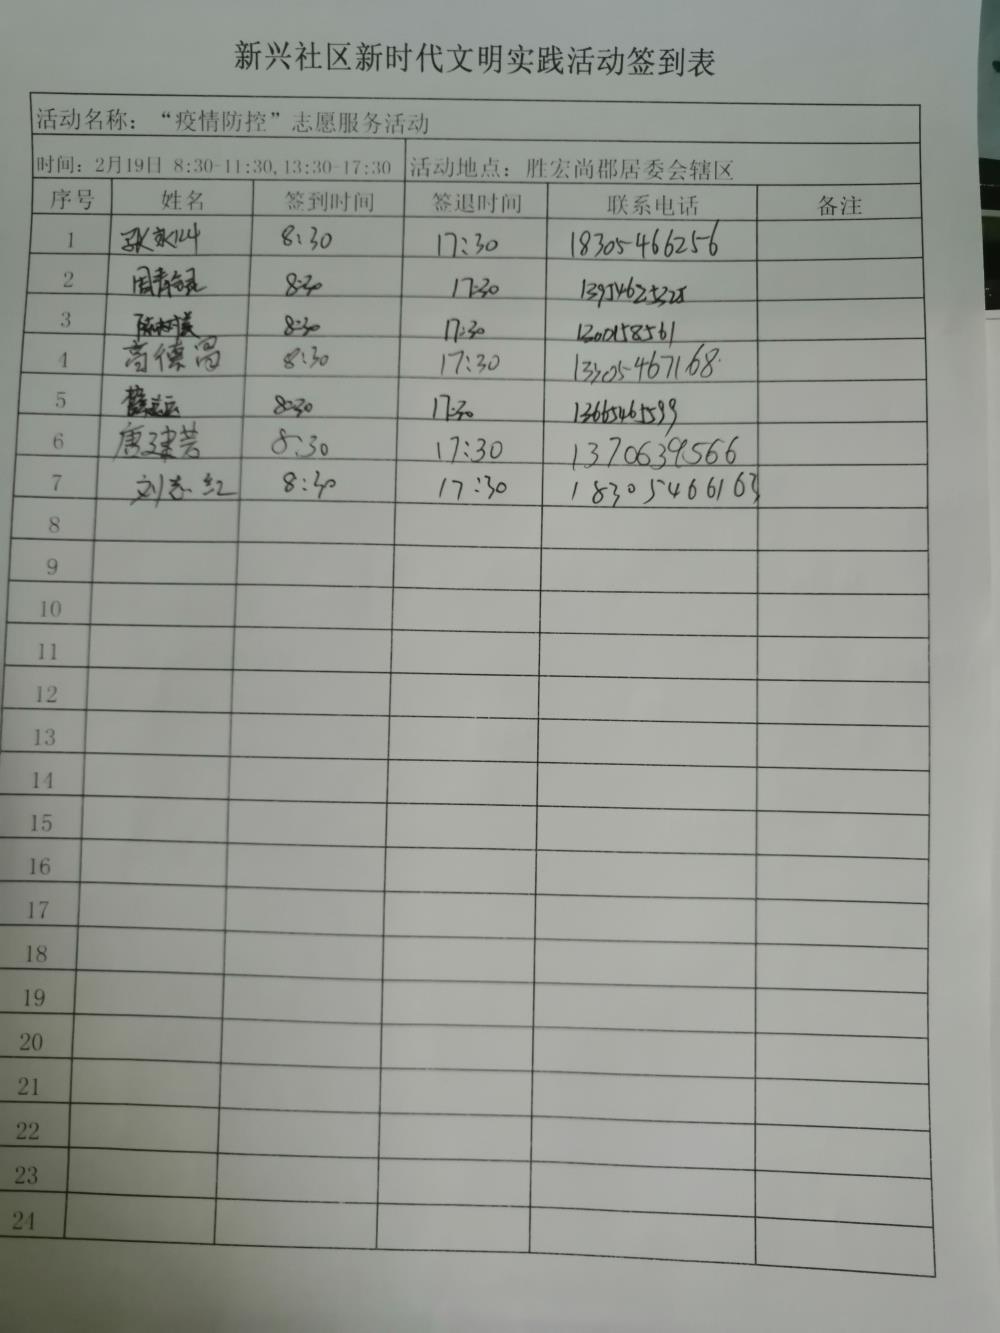 新兴社区新时代文明实践活动签到表
活动名称：“疫情防控”志愿服务活动
时间：2月19日 8:30-11:30,13:30-17:30 活动地点：胜宏尚郡居委会辖区
序号 姓名 签到时间 签退时间 联系电话 备注
1 8:30 17:30 18305466256
2 8:30 17:30 13954625328
3 8:30 17:30
4 高德昌 8:30 17:30 13305467168
5 8:30 17:30
6 唐建芸 8:30 17:30 13706395666
7 刘志红 8:30 17:30 18305466163
8
9
10
11
12
13
14
15
16
17
18
19
20
21
22
23
24